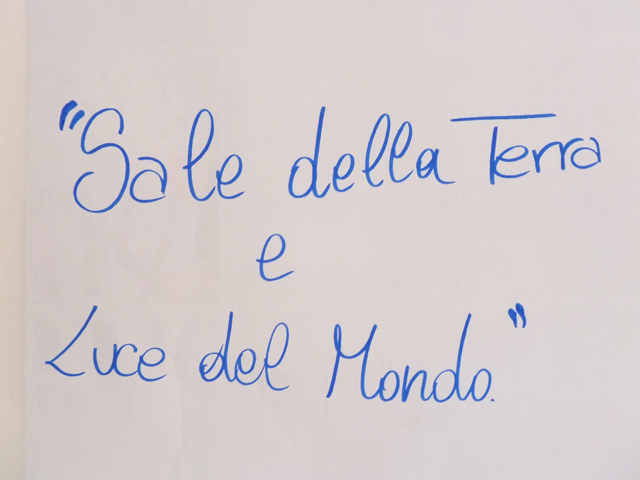 "Sale della Terra
e
Luce del Mondo."